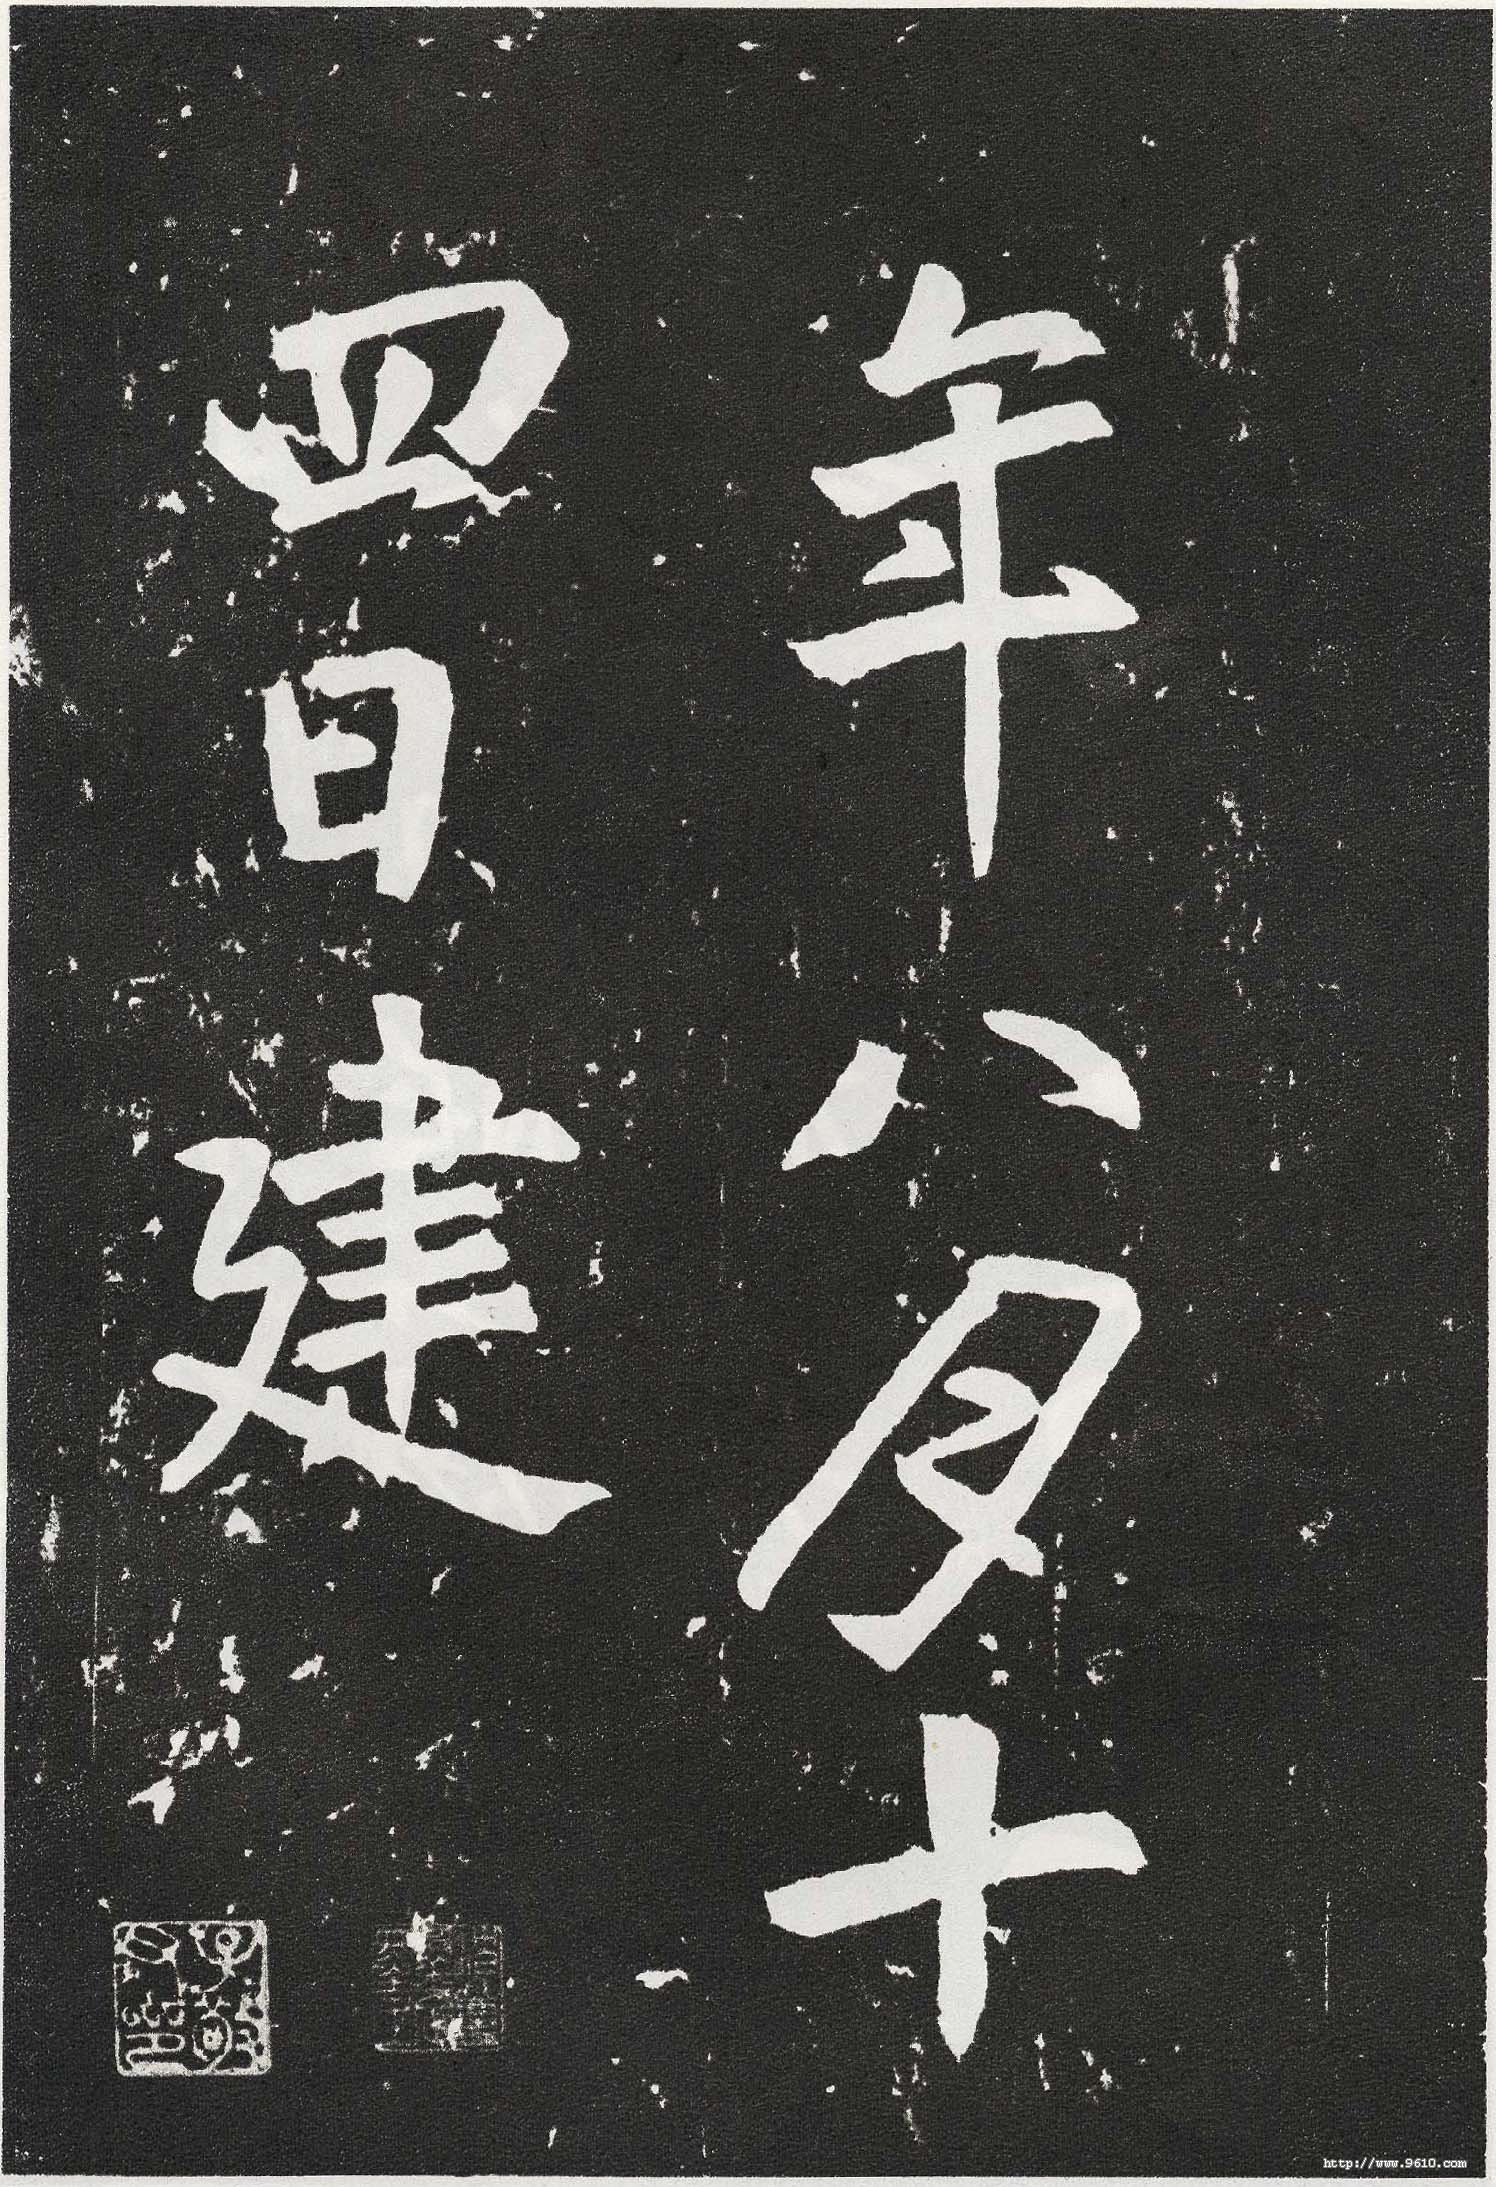 年八月十
四日建
http://www.9610.com